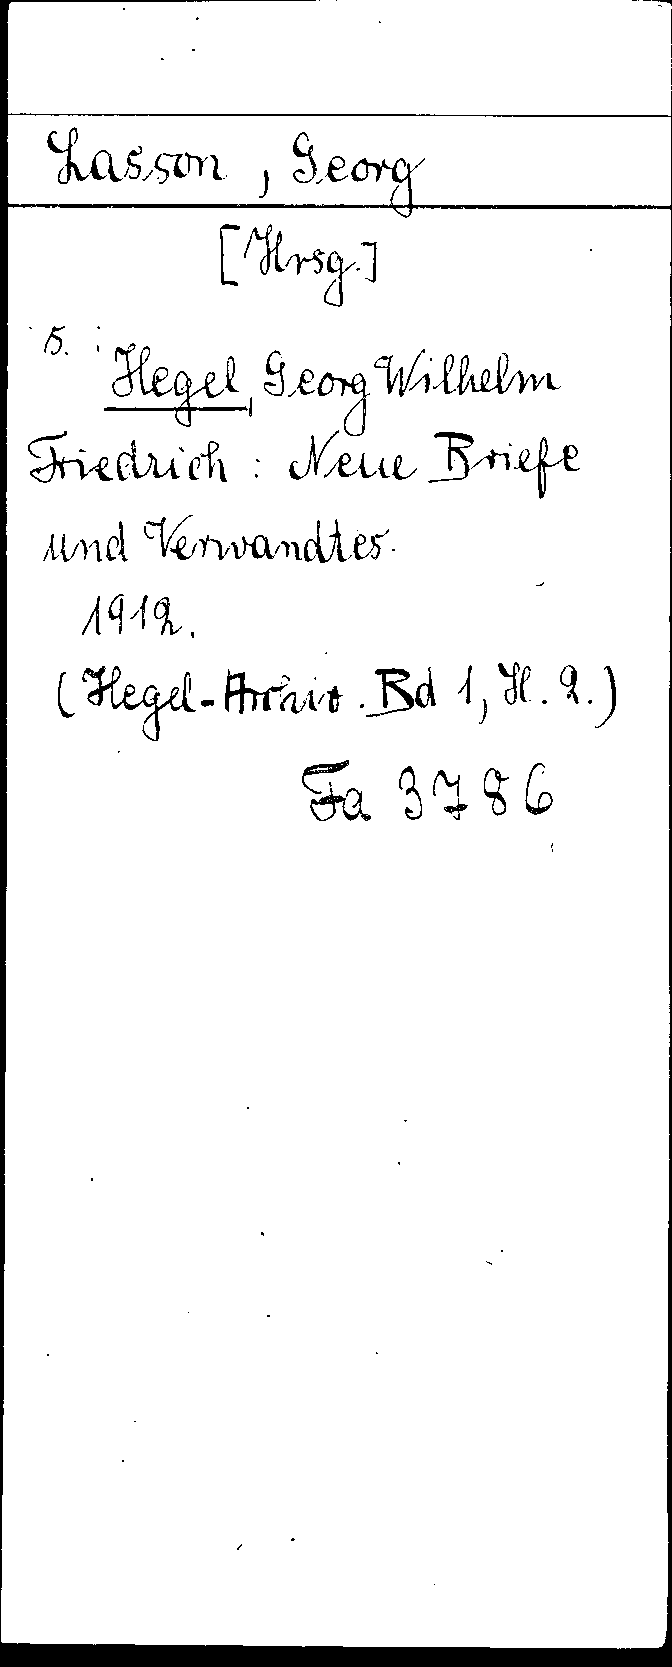 Lasson, Georg
[Hrsg.]
s. :
Hegel, Georg Wilhelm
Friedrich: Neue Briefe
und Verwandtes.
1912.
(Hegel-Archiv. Bd 1, H. 2.)
Fa 3786